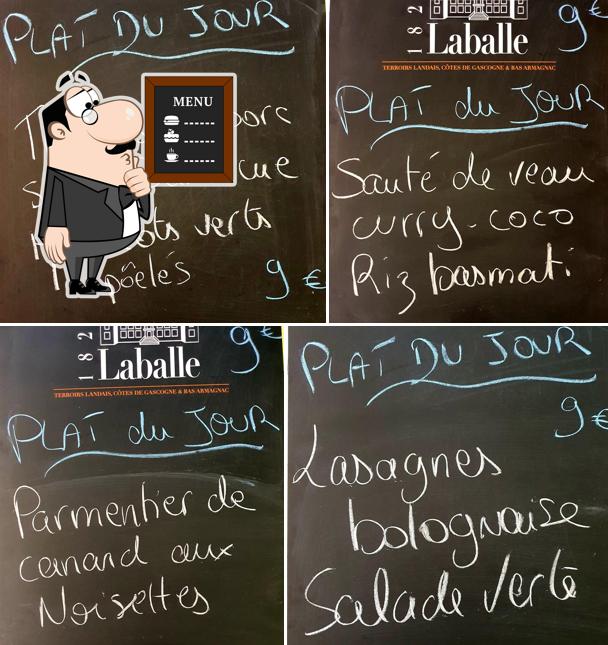 PLAT DU JOUR
MENU
verts
poêlés
9 €
9 €
182
Laballe
TERROIRS LANDAIS, CÔTES DE GASCOGNE & BAS ARMAGNAC
PLAT du JOUR
Sauté de veau
curry-coco
Riz basmati
9 €
182
Laballe
TERROIRS LANDAIS, CÔTES DE GASCOGNE & BAS ARMAGNAC
PLAT du JOUR
Parmentier de
canard aux
Noisettes
PLAT DU JOUR
9 €
Lasagnes
bolognaise
Salade verte